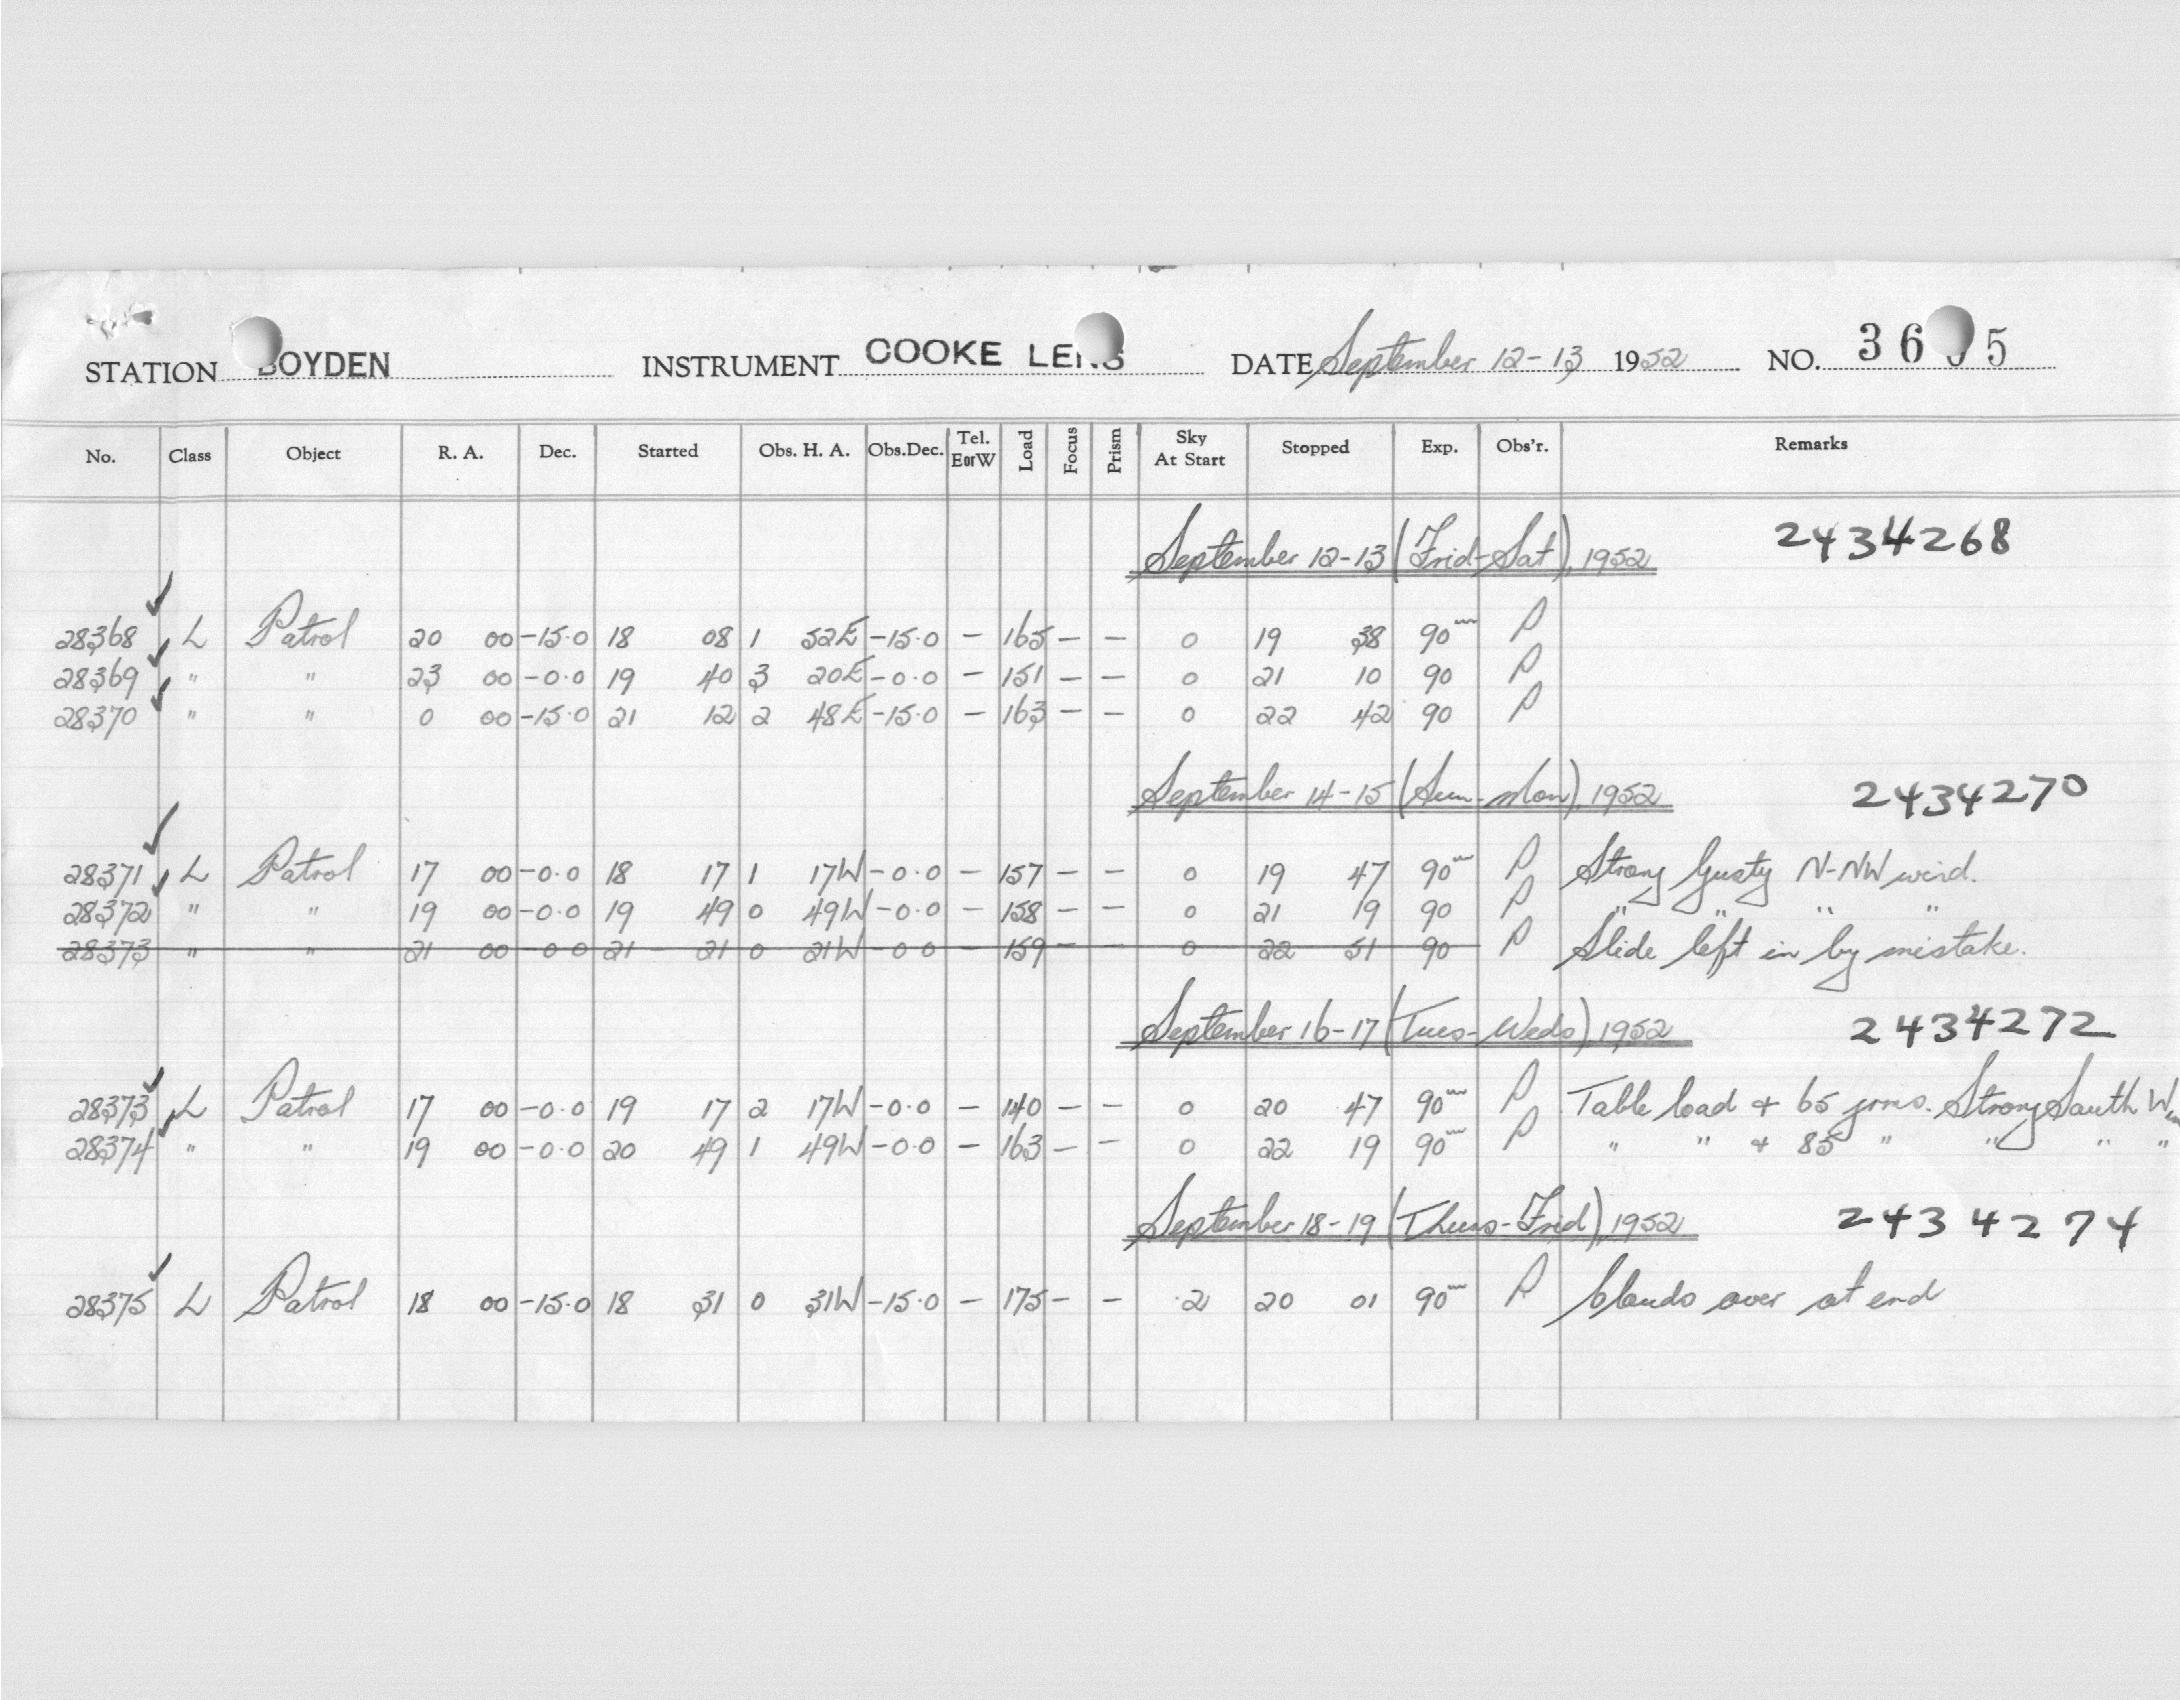 STATION BOYDEN INSTRUMENT COOKE LENS DATE September 12-13 1952 NO. 36 5
No. Class Object R. A. Dec. Started Obs. H. A. Obs.Dec. Tel. EorW Load Focus Prism Sky At Start Stopped Exp. Obs'r. Remarks
September 12-13 (Frid-Sat), 1952 2434268
28368 L Patrol 20 00 -15.0 18 08 1 52E -15.0 - 165 - - 0 19 38 90m P
28369 " " 23 00 -0.0 19 40 3 20E -0.0 - 151 - - 0 21 10 90 P
28370 " " 0 00 -15.0 21 12 2 48E -15.0 - 163 - - 0 22 42 90 P
September 14-15 (Sun-Mon), 1952 2434270
28371 L Patrol 17 00 -0.0 18 17 1 17W -0.0 - 157 - - 0 19 47 90m P Strong Gusty N-NW wind.
28372 " " 19 00 -0.0 19 49 0 49W -0.0 - 158 - - 0 21 19 90 P " " " "
28373 " " 21 00 -0.0 21 21 0 21W -0.0 - 159 - - 0 22 51 90 P Slide left in by mistake.
September 16-17 (Tues-Weds), 1952 2434272
28373 L Patrol 17 00 -0.0 19 17 2 17W -0.0 - 140 - - 0 20 47 90m P Table load + 65 grms. Strong South
28374 " " 19 00 -0.0 20 49 1 49W -0.0 - 163 - - 0 22 19 90m P " " + 85 " " " "
September 18-19 (Thurs-Frid), 1952 2434274
28375 L Patrol 18 00 -15.0 18 31 0 31W -15.0 - 175 - - 2 20 01 90m P Clouds over at end